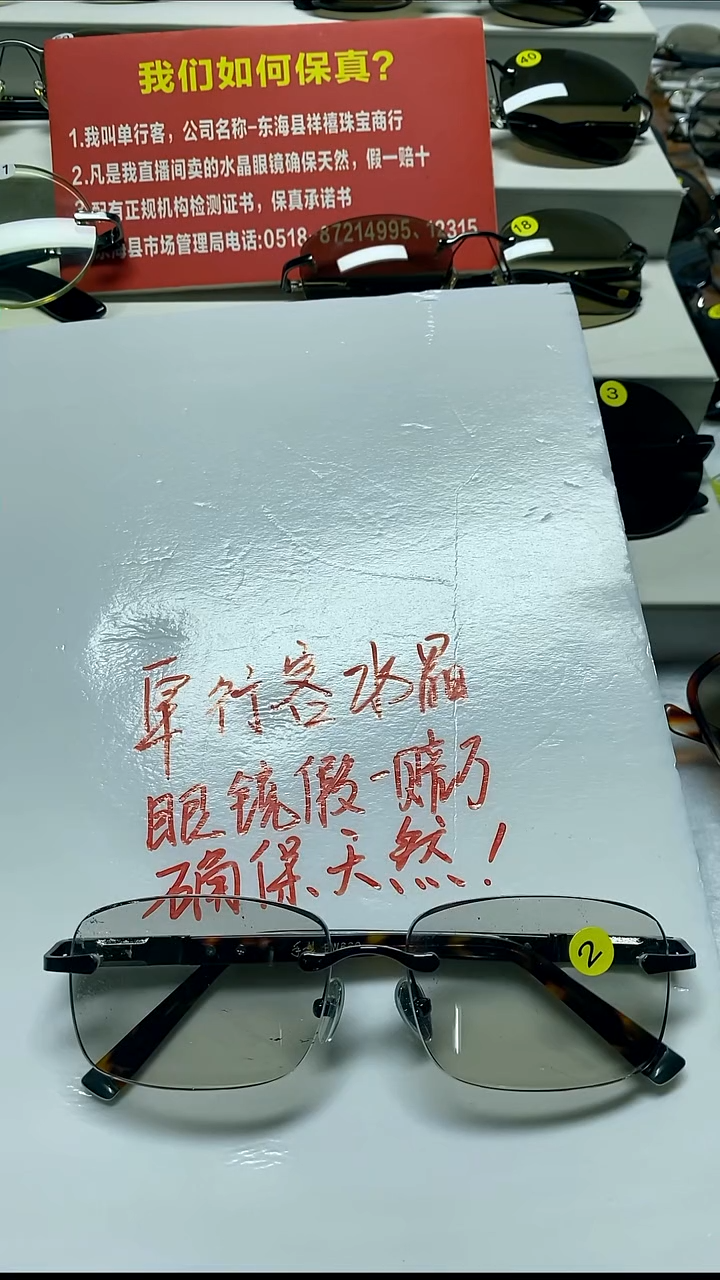 我们如何保真?
1.我叫单行客，公司名称-东海县祥禧珠宝商行
2.凡是我直播间卖的水晶眼镜确保天然，假一赔十
3.配有正规机构检测证书，保真承诺书
东海县市场管理局电话:0518-87214995、12315
40
1
18
3
单行客水晶
眼镜假一赔万
确保天然!
2